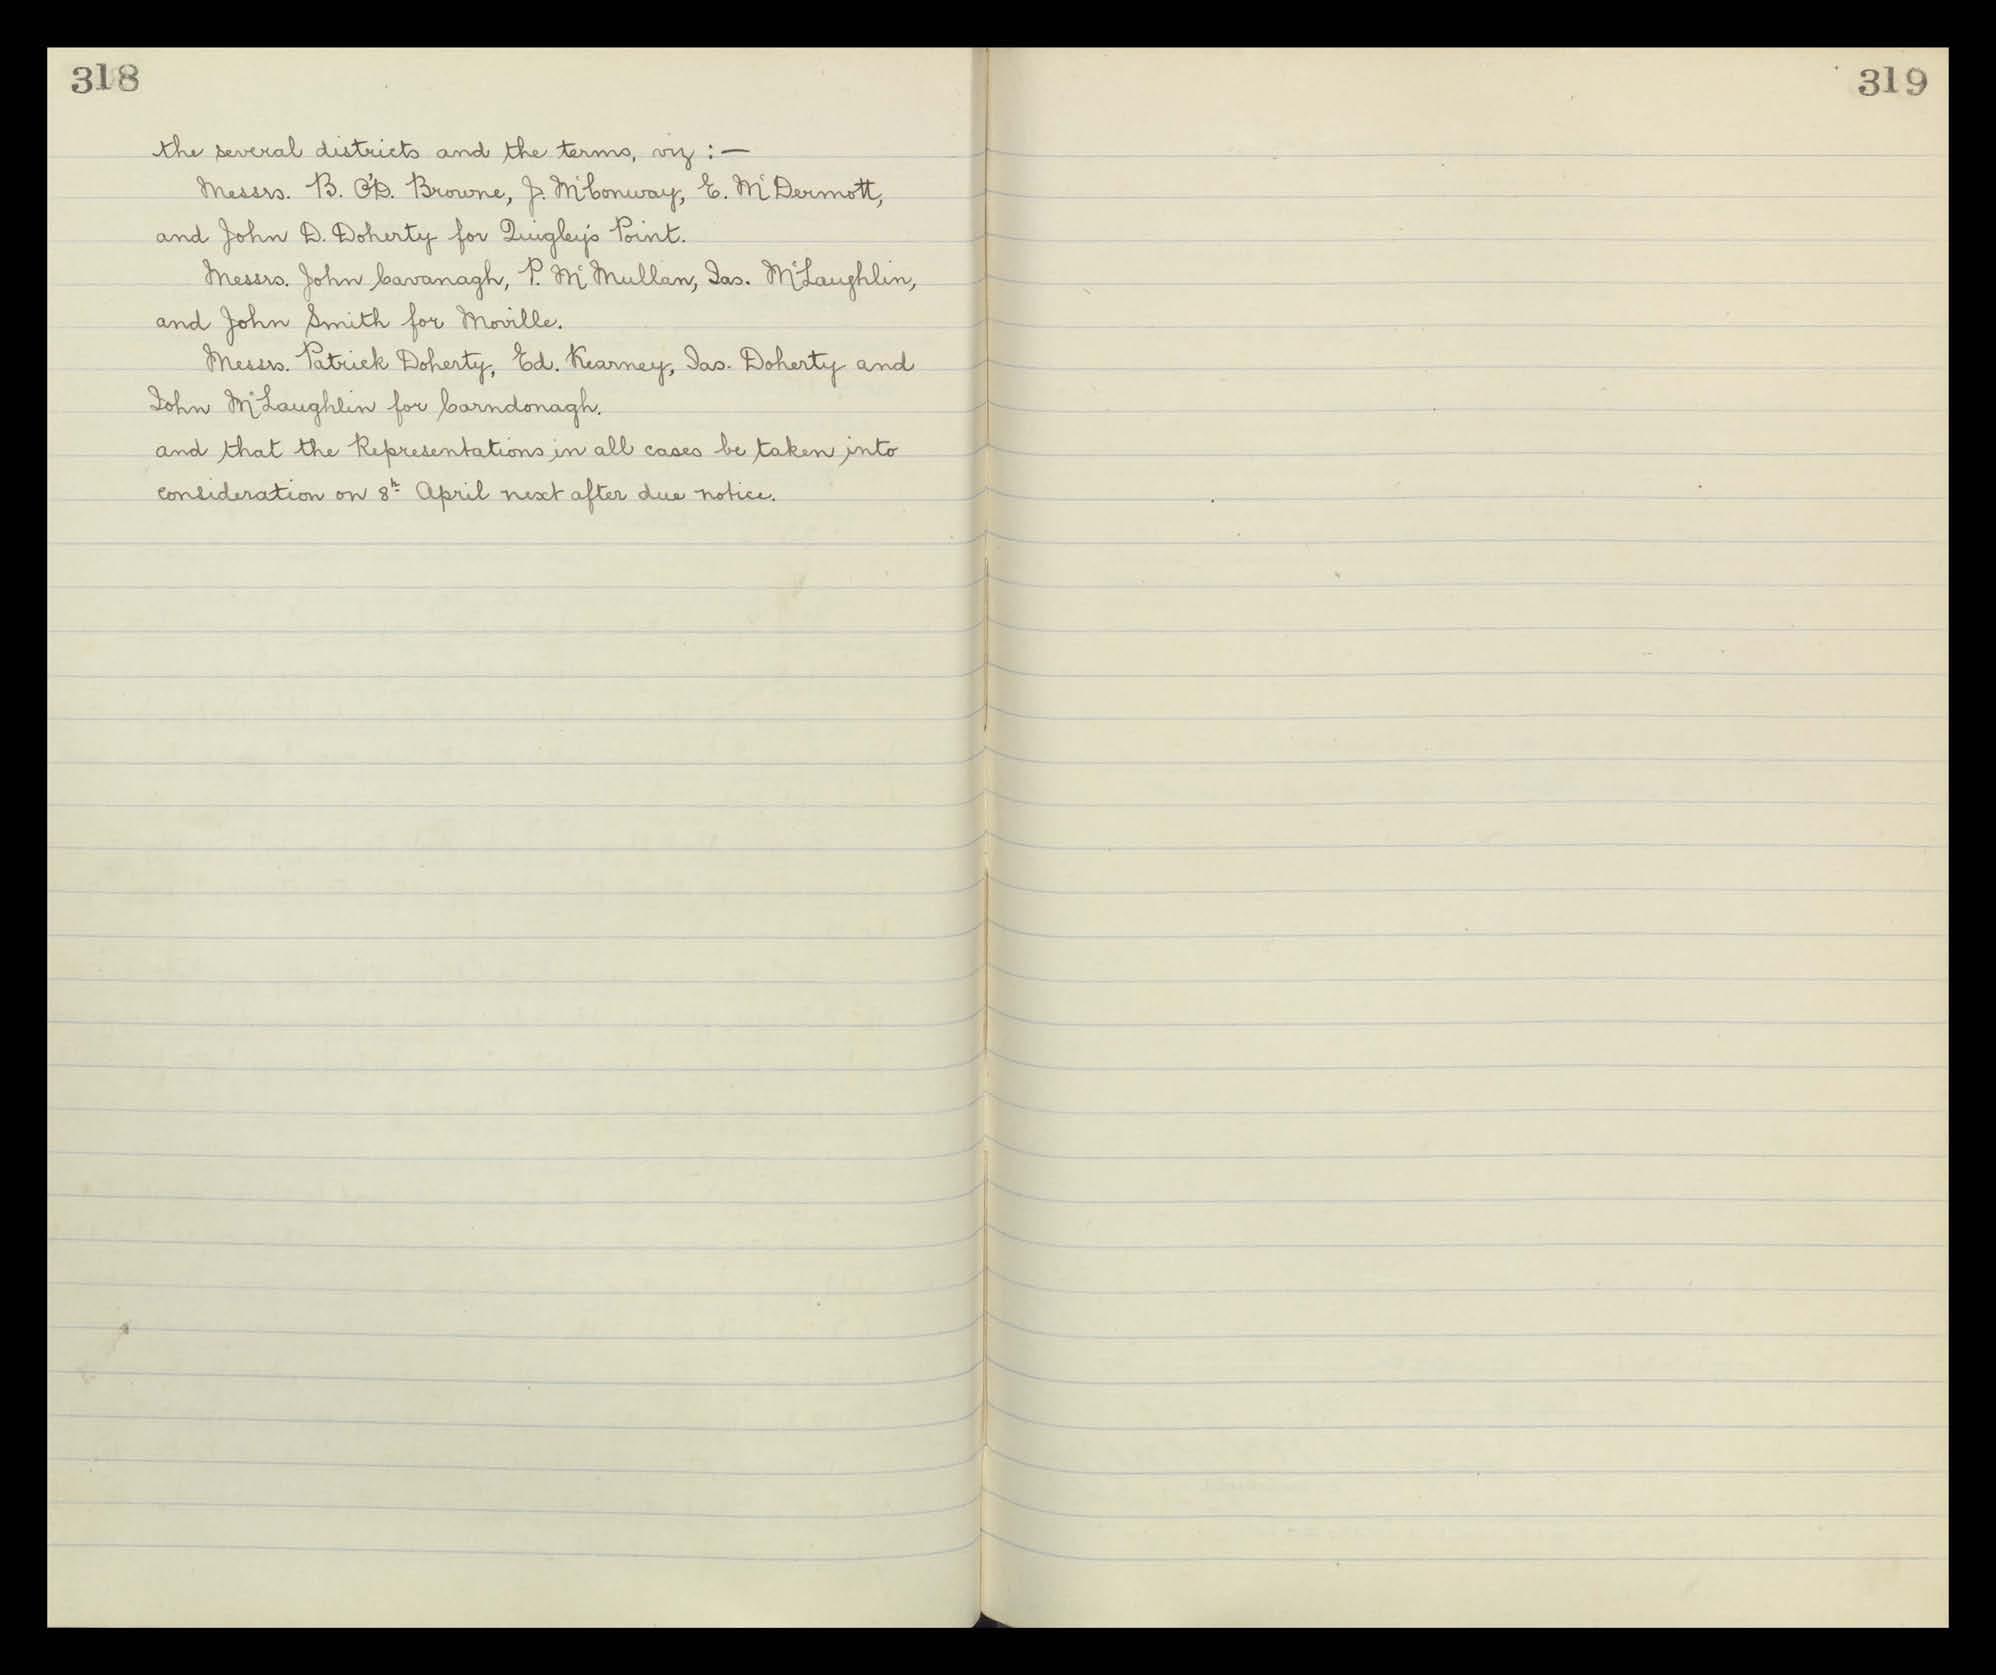 318
the several districts and the terms, viz :—
Messrs. B. O'D. Browne, J. McConway, E. McDermott,
and John D. Doherty for Quigley's Point.
Messrs. John Cavanagh, P. McMullan, Jas. McLaughlin,
and John Smith for Moville.
Messrs. Patrick Doherty, Ed. Kearney, Jas. Doherty and
John McLaughlin for Carndonagh.
and that the Representations in all cases be taken into
consideration on 8th April next after due notice.
319